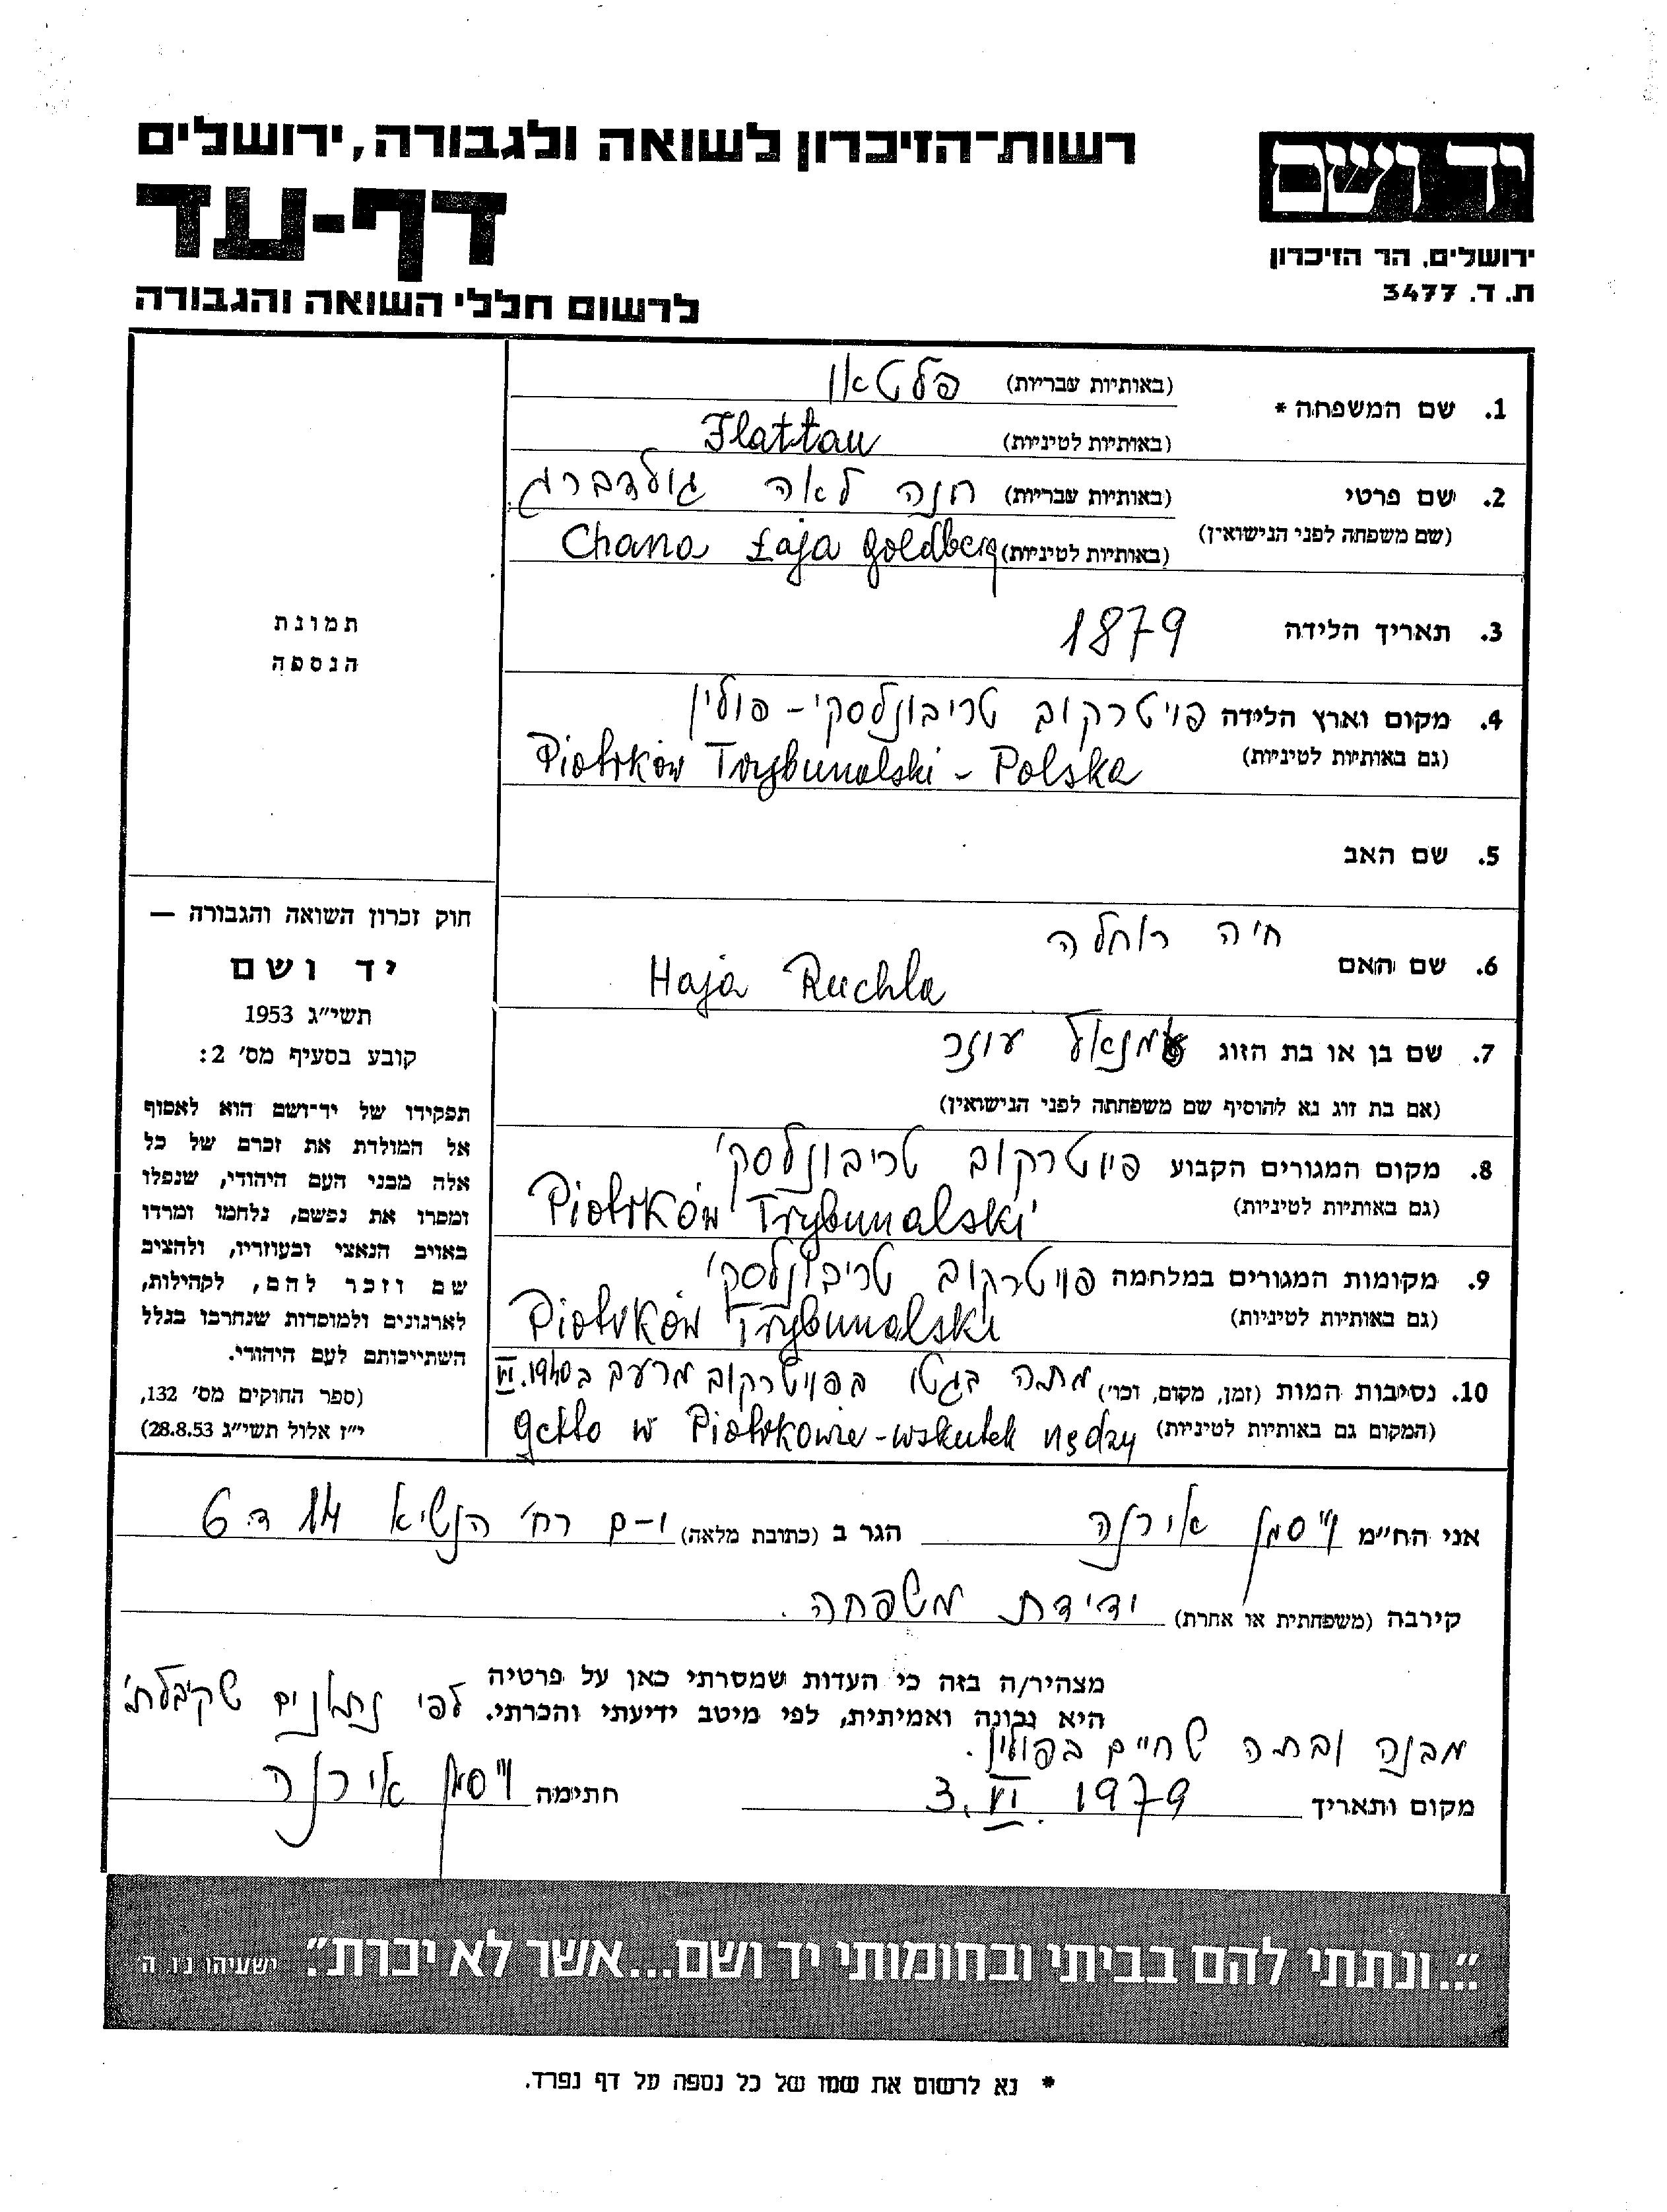 רשות־הזיכרון לשואה ולגבורה, ירושלים
דף-עד
לרשום חללי השואה והגבורה
יד ושם
ירושלים, הר הזיכרון
ת. ד. 3477
1. שם המשפחה * (באותיות עבריות) פלטאו
(באותיות לטיניות) Flattau
2. שם פרטי (באותיות עבריות) חנה לאה גולדברג
(שם משפחה לפני הנישואין) (באותיות לטיניות) Chana Łaja Goldberg
3. תאריך הלידה 1879
4. מקום וארץ הלידה פויטרקוב טריבונלסקי - פולין
(גם באותיות לטיניות) Piotrków Trybunalski - Polska
5. שם האב
6. שם האם חיה רוחלה
Haja Ruchla
7. שם בן או בת הזוג עמנואל עוזר
(אם בת זוג נא להוסיף שם משפחתה לפני הנישואין)
8. מקום המגורים הקבוע פיוטרקוב טריבונלסקי
(גם באותיות לטיניות) Piotrków Trybunalski
9. מקומות המגורים במלחמה פויטרקוב טריבונלסקי
(גם באותיות לטיניות) Piotrków Trybunalski
10. נסיבות המות (זמן, מקום, וכו') מתה בגטו בפויטרקוב מרעב ב VI.1940
(המקום גם באותיות לטיניות) getto w Piotrkowie - wskutek nędzy
תמונת
הנספה
חוק זכרון השואה והגבורה —
יד ושם
תשי״ג 1953
קובע בסעיף מס' 2:
תפקידו של יד־ושם הוא לאסוף
אל המולדת את זכרם של כל
אלה מבני העם היהודי, שנפלו
ומסרו את נפשם, נלחמו ומרדו
באויב הנאצי ובעוזריו, ולהציב
שם וזכר להם, לקהילות,
לארגונים ולמוסדות שנחרבו בגלל
השתייכותם לעם היהודי.
(ספר החוקים מס' 132,
י״ז אלול תשי״ג 28.8.53)
אני הח״מ וייסמן אירנה הגר ב (כתובת מלאה) רח' הנשיא 14 ד. 6
קירבה (משפחתית או אחרת) ידידת משפחה.
מצהיר/ה בזה כי העדות שמסרתי כאן על פרטיה
היא נכונה ואמיתית, לפי מיטב ידיעתי והכרתי. לפי נתונים שקיבלתי
מבנה ובתה שחיים בפולין.
מקום ותאריך 3. VI. 1979 חתימה וייסמן אירנה
"...ונתתי להם בביתי ובחומותי יד ושם...אשר לא יכרת". ישעיהו נו, ה'
* נא לרשום את שמו של כל נספה על דף נפרד.